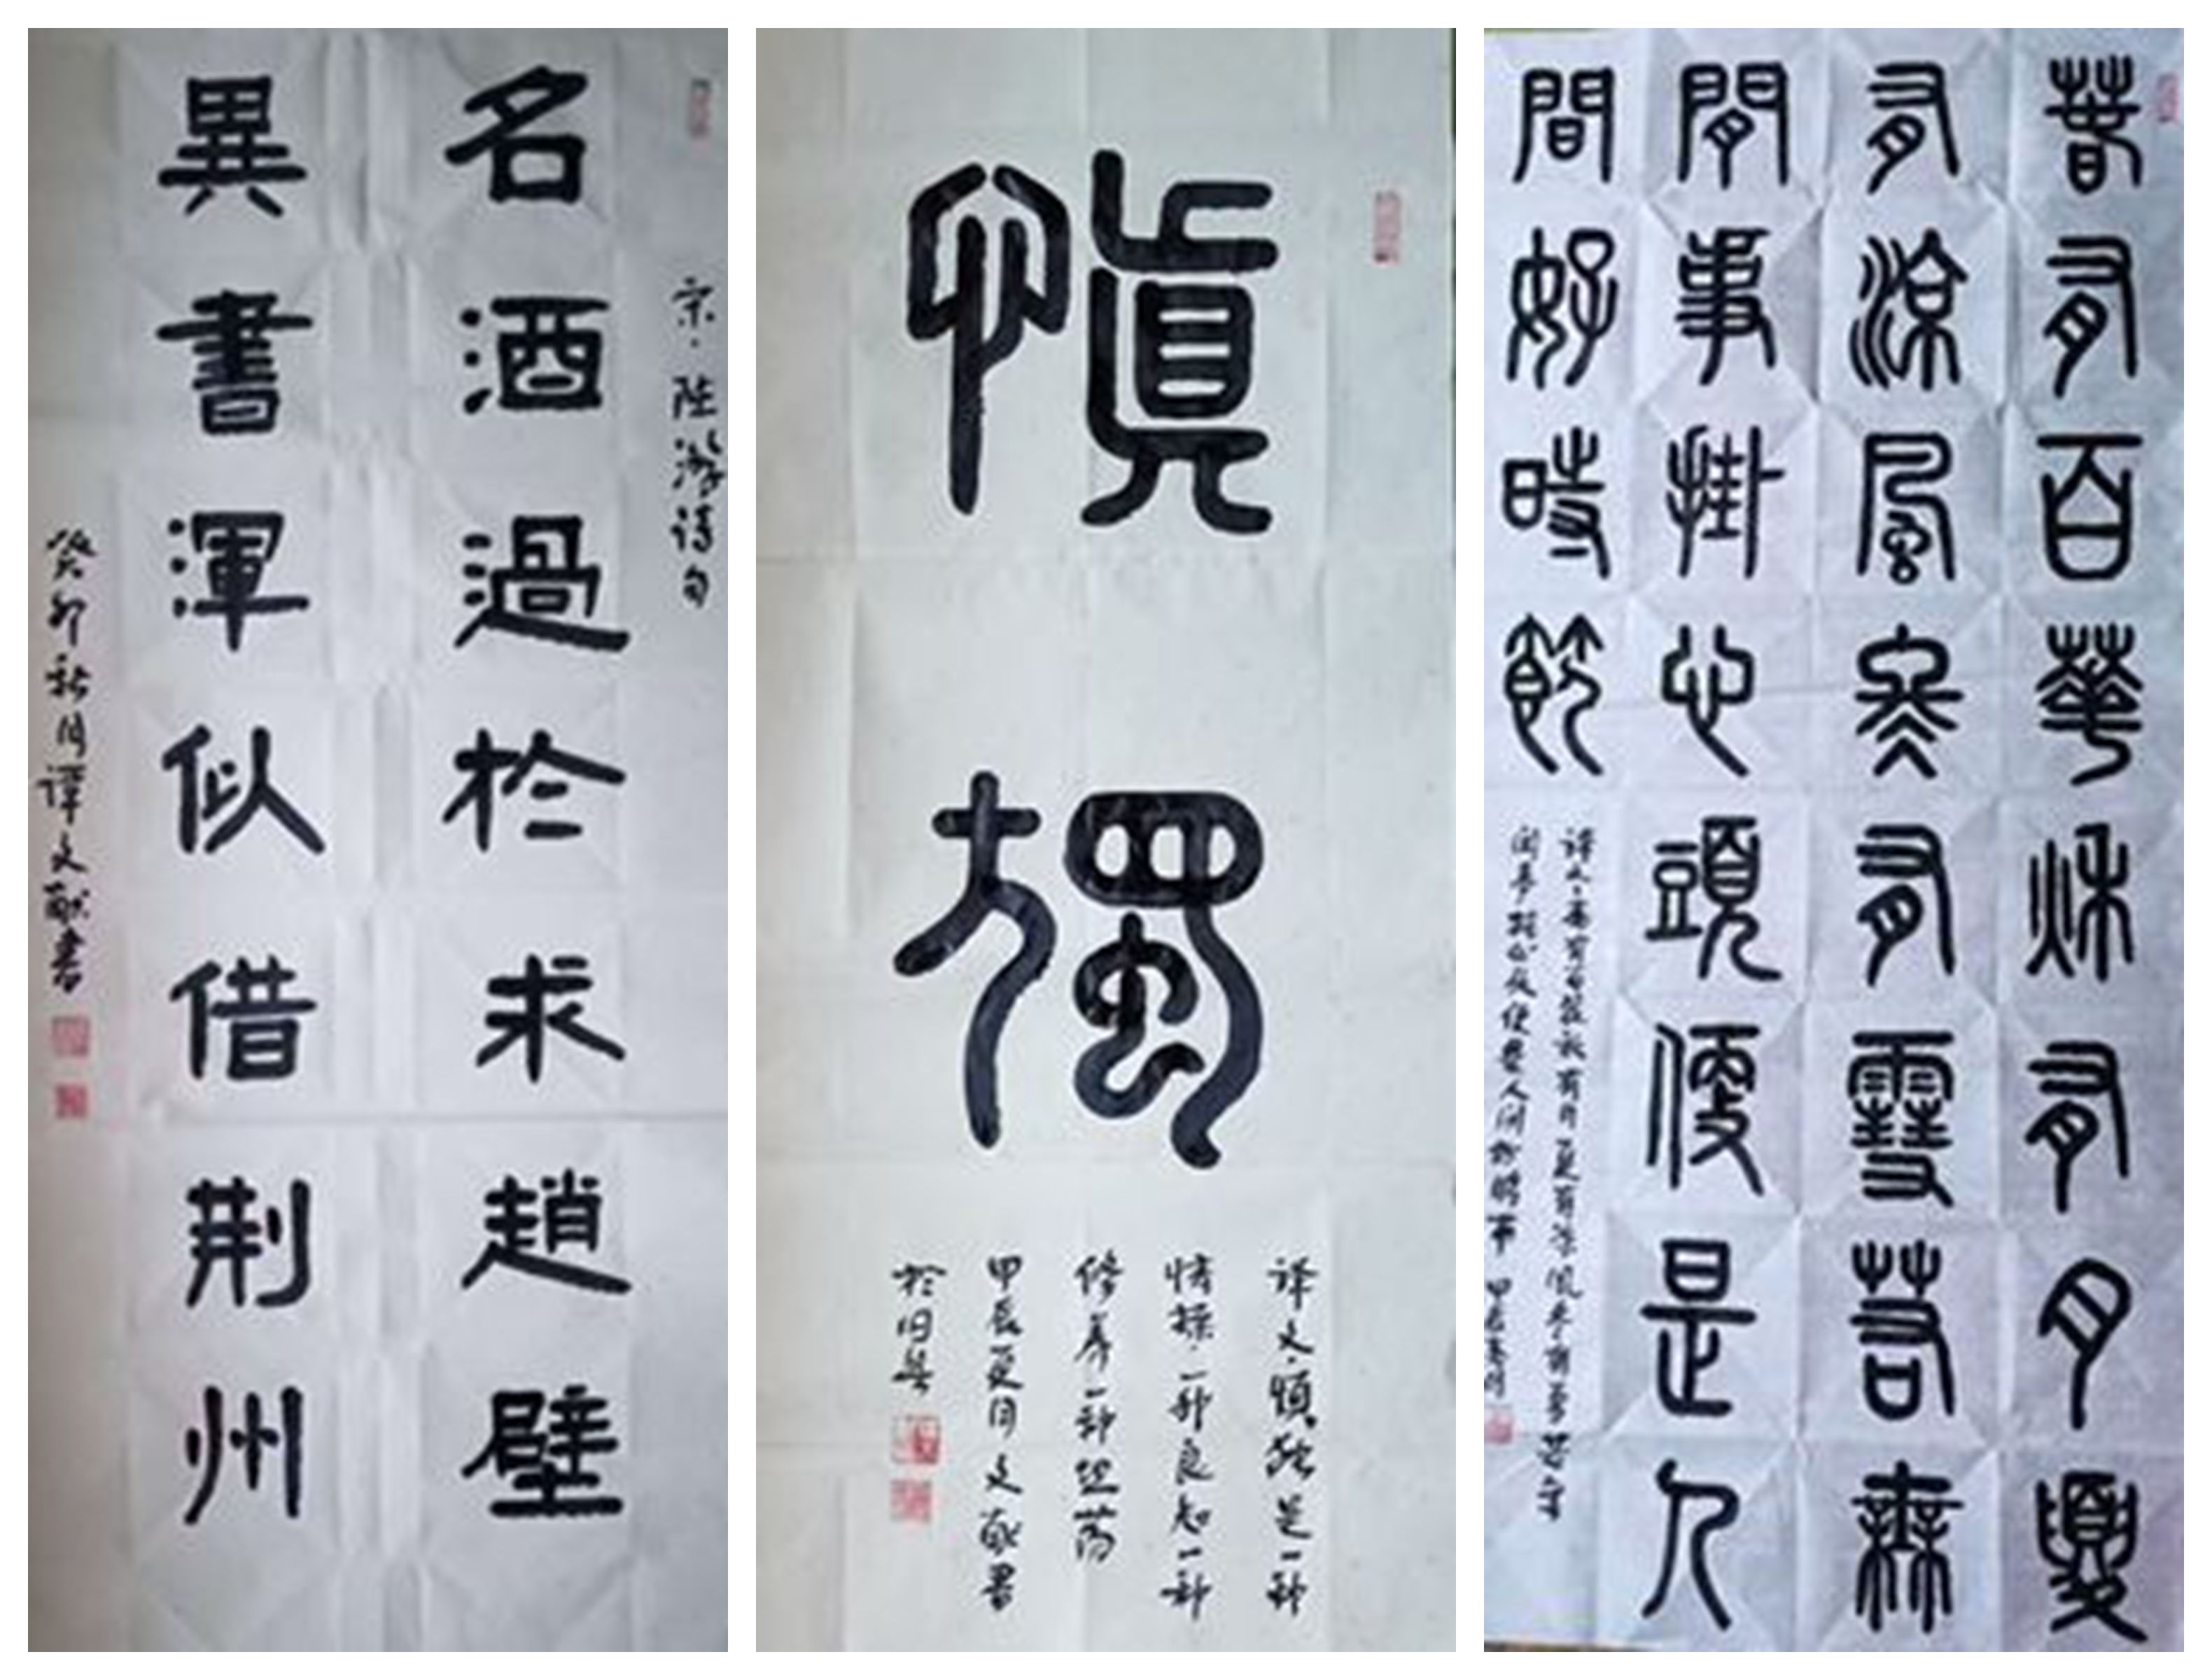 宋·陆游诗句
名酒過於求趙璧
異書渾似借荆州
癸卯秋月譚文献書
慎
獨
译文·慎独是一种
情操·一种良知一种
修养一种坦荡
甲辰夏月文献書
春有百華秋有月夏
有涼風冬有雪若無
閒事掛心頭便是人
間好時節
译文·春有百花秋有月夏有凉风冬有雪若無
闲事挂心头便是人间好时节 甲辰春月